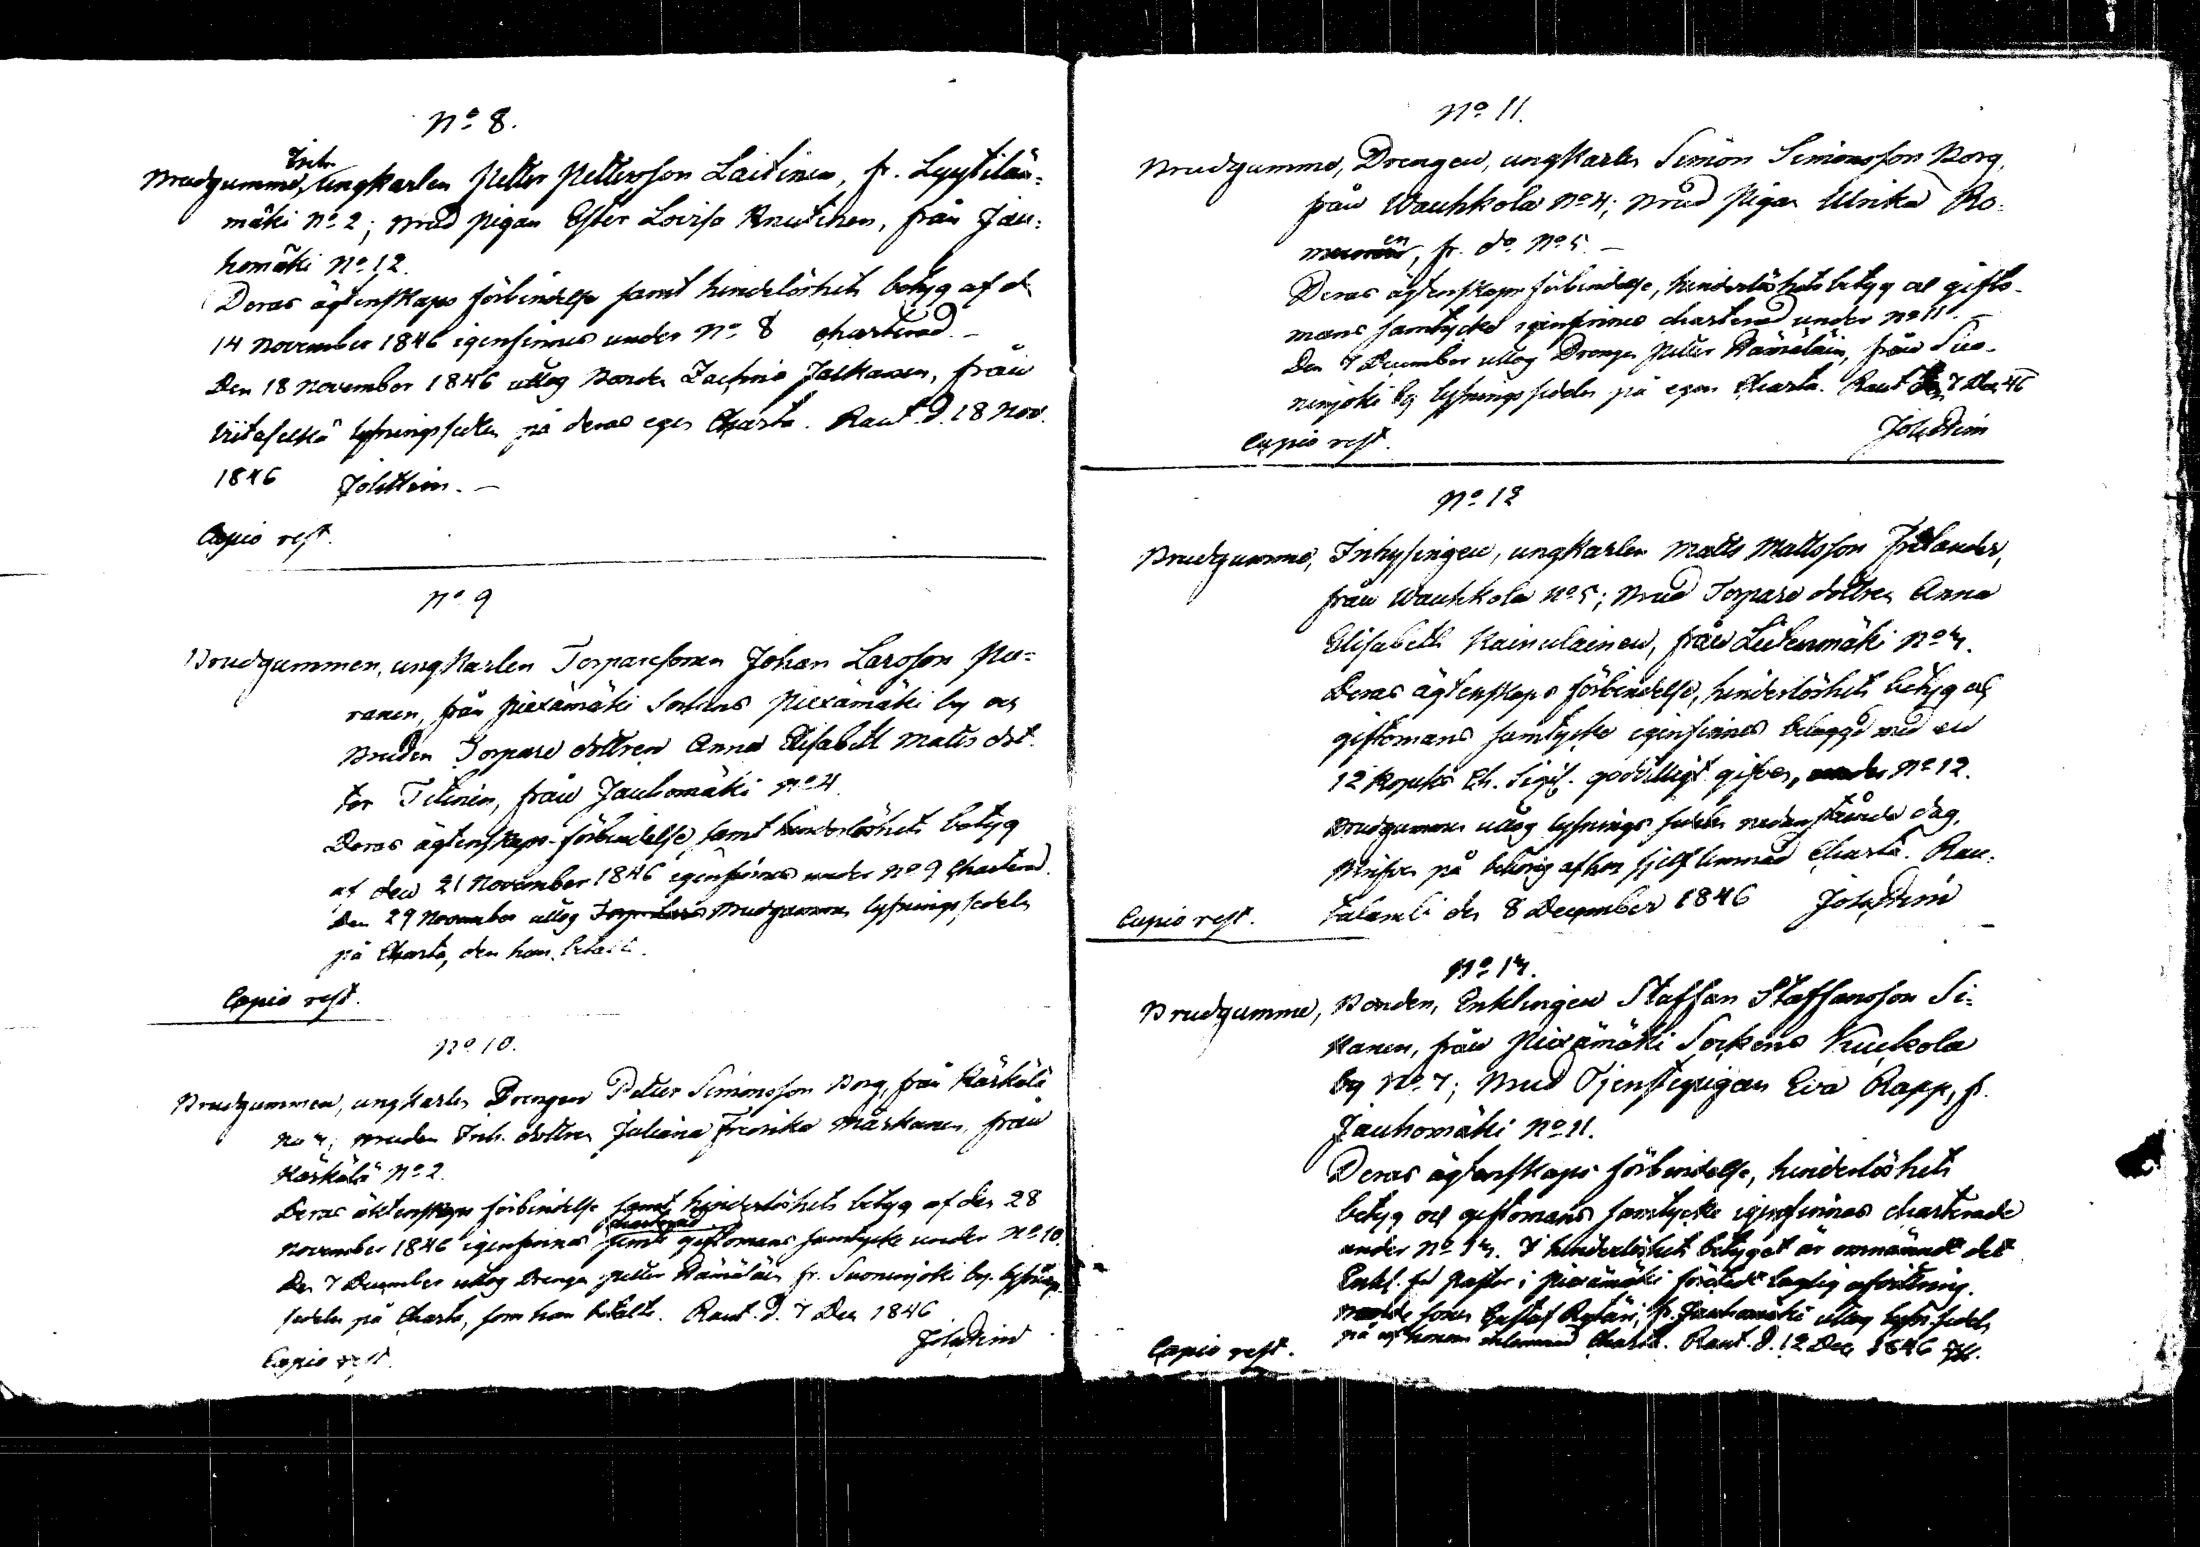 No 8.
Inh.
Brudgumme, ungkarlen Petter Pettersson Laitinen, fr. Lyytilän=
mäki No 2; Brud pigan Ester Lovisa Knutinen, från Jau=
homäki No 12.
Deras ägtenskaps förbindelse samt hinderlöshets betyg af d.
14 November 1846 igenfinnes under No 8 charterad. —
Den 18 November 1846 uttog Bonden Zachris Jalkanen, från
Viitaselkä lysningssedeln på deras egen Charta. Raut. d. 18 Nov.
1846 Joh. —
Copia rest.
No 9
Brudgummen, ungkarlen Torparesonen Johan Larsson Pu=
ranen, från Piexämäki Sockens Piexämäki by och
Bruden Torpare dottren Anna Elisabeth Matts dot=
ter Titinen, från Jauhomäki No 4.
Deras ägtenskaps-förbindelse samt hinderlöshets betyg
af den 21 November 1846 igenfinnes under No 9 Charterad.
Den 29 November uttog Brudgummen lysningssedeln
på Charta, den han betalte.
Copia rest.
No 10.
Brudgummen, ungkarlen Drengen Petter Simonsson Borg, från Kärkälä
No 4; Bruden Inh. dottren Juliana Fredrika Markanen, från
Kärkälä No 2.
Deras äktenskaps förbindelse samt hinderlöshets betyg af den 28
charterad
November 1846 igenfinnes samt giftomans samtycke under No 10.
Den 7 December uttog Drengen Petter Hämäläin fr. Suonenjoki by. lysnings
sedeln på Charta, som han betalte. Raut. d. 7 Dec 1846
Copia rest.
No 11.
Brudgumme, Drengen, ungkarlen Simon Simonsson Borg,
från Wauhkola No 4; Brud Pigan Ulrika Ro=
en
, fr. do No 5. —
Deras ägtenskaps förbindelse, hinderlöshets betyg och gifto-
mans samtycke igenfinnes charterad under No 11. —
Den 7 December uttog Drengen Petter Hämäläin, från Suo-
nenjoki by lysningssedeln på egen Charta. Raut den 7 Dec 46
Copia rest.
No 12
Brudgumme, Inhysingen, ungkarlen Matts Mattsson Frilander,
från Wauhkola No 5; Brud Torpare dottren Anna
Elisabeth Kainulainen, från Lietenmäki No 4.
Deras ägtenskaps förbindelse, hinderlöshets betyg och
giftomans samtycke igenfinnes belaggd med en
12 Kopeks Ch. Sigil. godvilligt gifven, under No 12.
Brudgummen uttog lysnings sedeln nedanstående dag,
skrifven på behörig af hon sjelf lemnad Charta. Rau=
talambi den 8 December 1846
Copia rest.
No 14.
Brudgumme, Bonden, Enklingen Staffan Staffansson Si=
kanen, från Piexämäki Sockens Kuckola
by No 7; Brud Tjenstepigan Eva Rapp, fr.
Jauhomäki No 11.
Deras ägtenskaps förbindelse, hinderlöshets
betyg och giftomans samtycke igenfinnas charterade
under No 14. I hinderlöshets betyget är omnämndt det
Enkl. för Pastor i Piexämäki företedt laglig afvittring.
sonen Gustaf, fr. Jauhomäki uttog lysn. sedeln
på af honom inlemnad Charta. Raut. d. 12 Dec 1846
Copia rest.